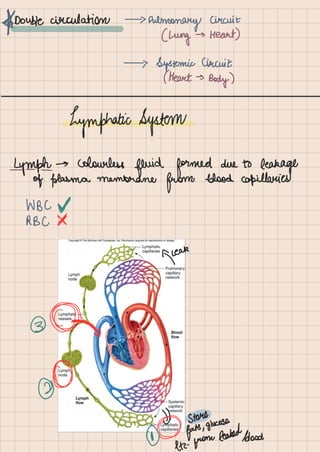 Double circulation → Pulmonary Circuit
(Lung → Heart)
→ Systemic Circuit
(Heart → Body)
Lymphatic System
Lymph → Colourless fluid formed due to leakage
of plasma membrane from blood capillaries
WBC ✓
RBC ✗
Lymphatic
capillaries
Leak
Pulmonary
capillary
network
Lymph
node
Lymphatic
vessels
3
Blood
flow
Lymph
node
2
Lymph
flow
Systemic
capillary
network
Lymphatic
capillaries
1
Store
fats, glucose
etc. from leaked blood